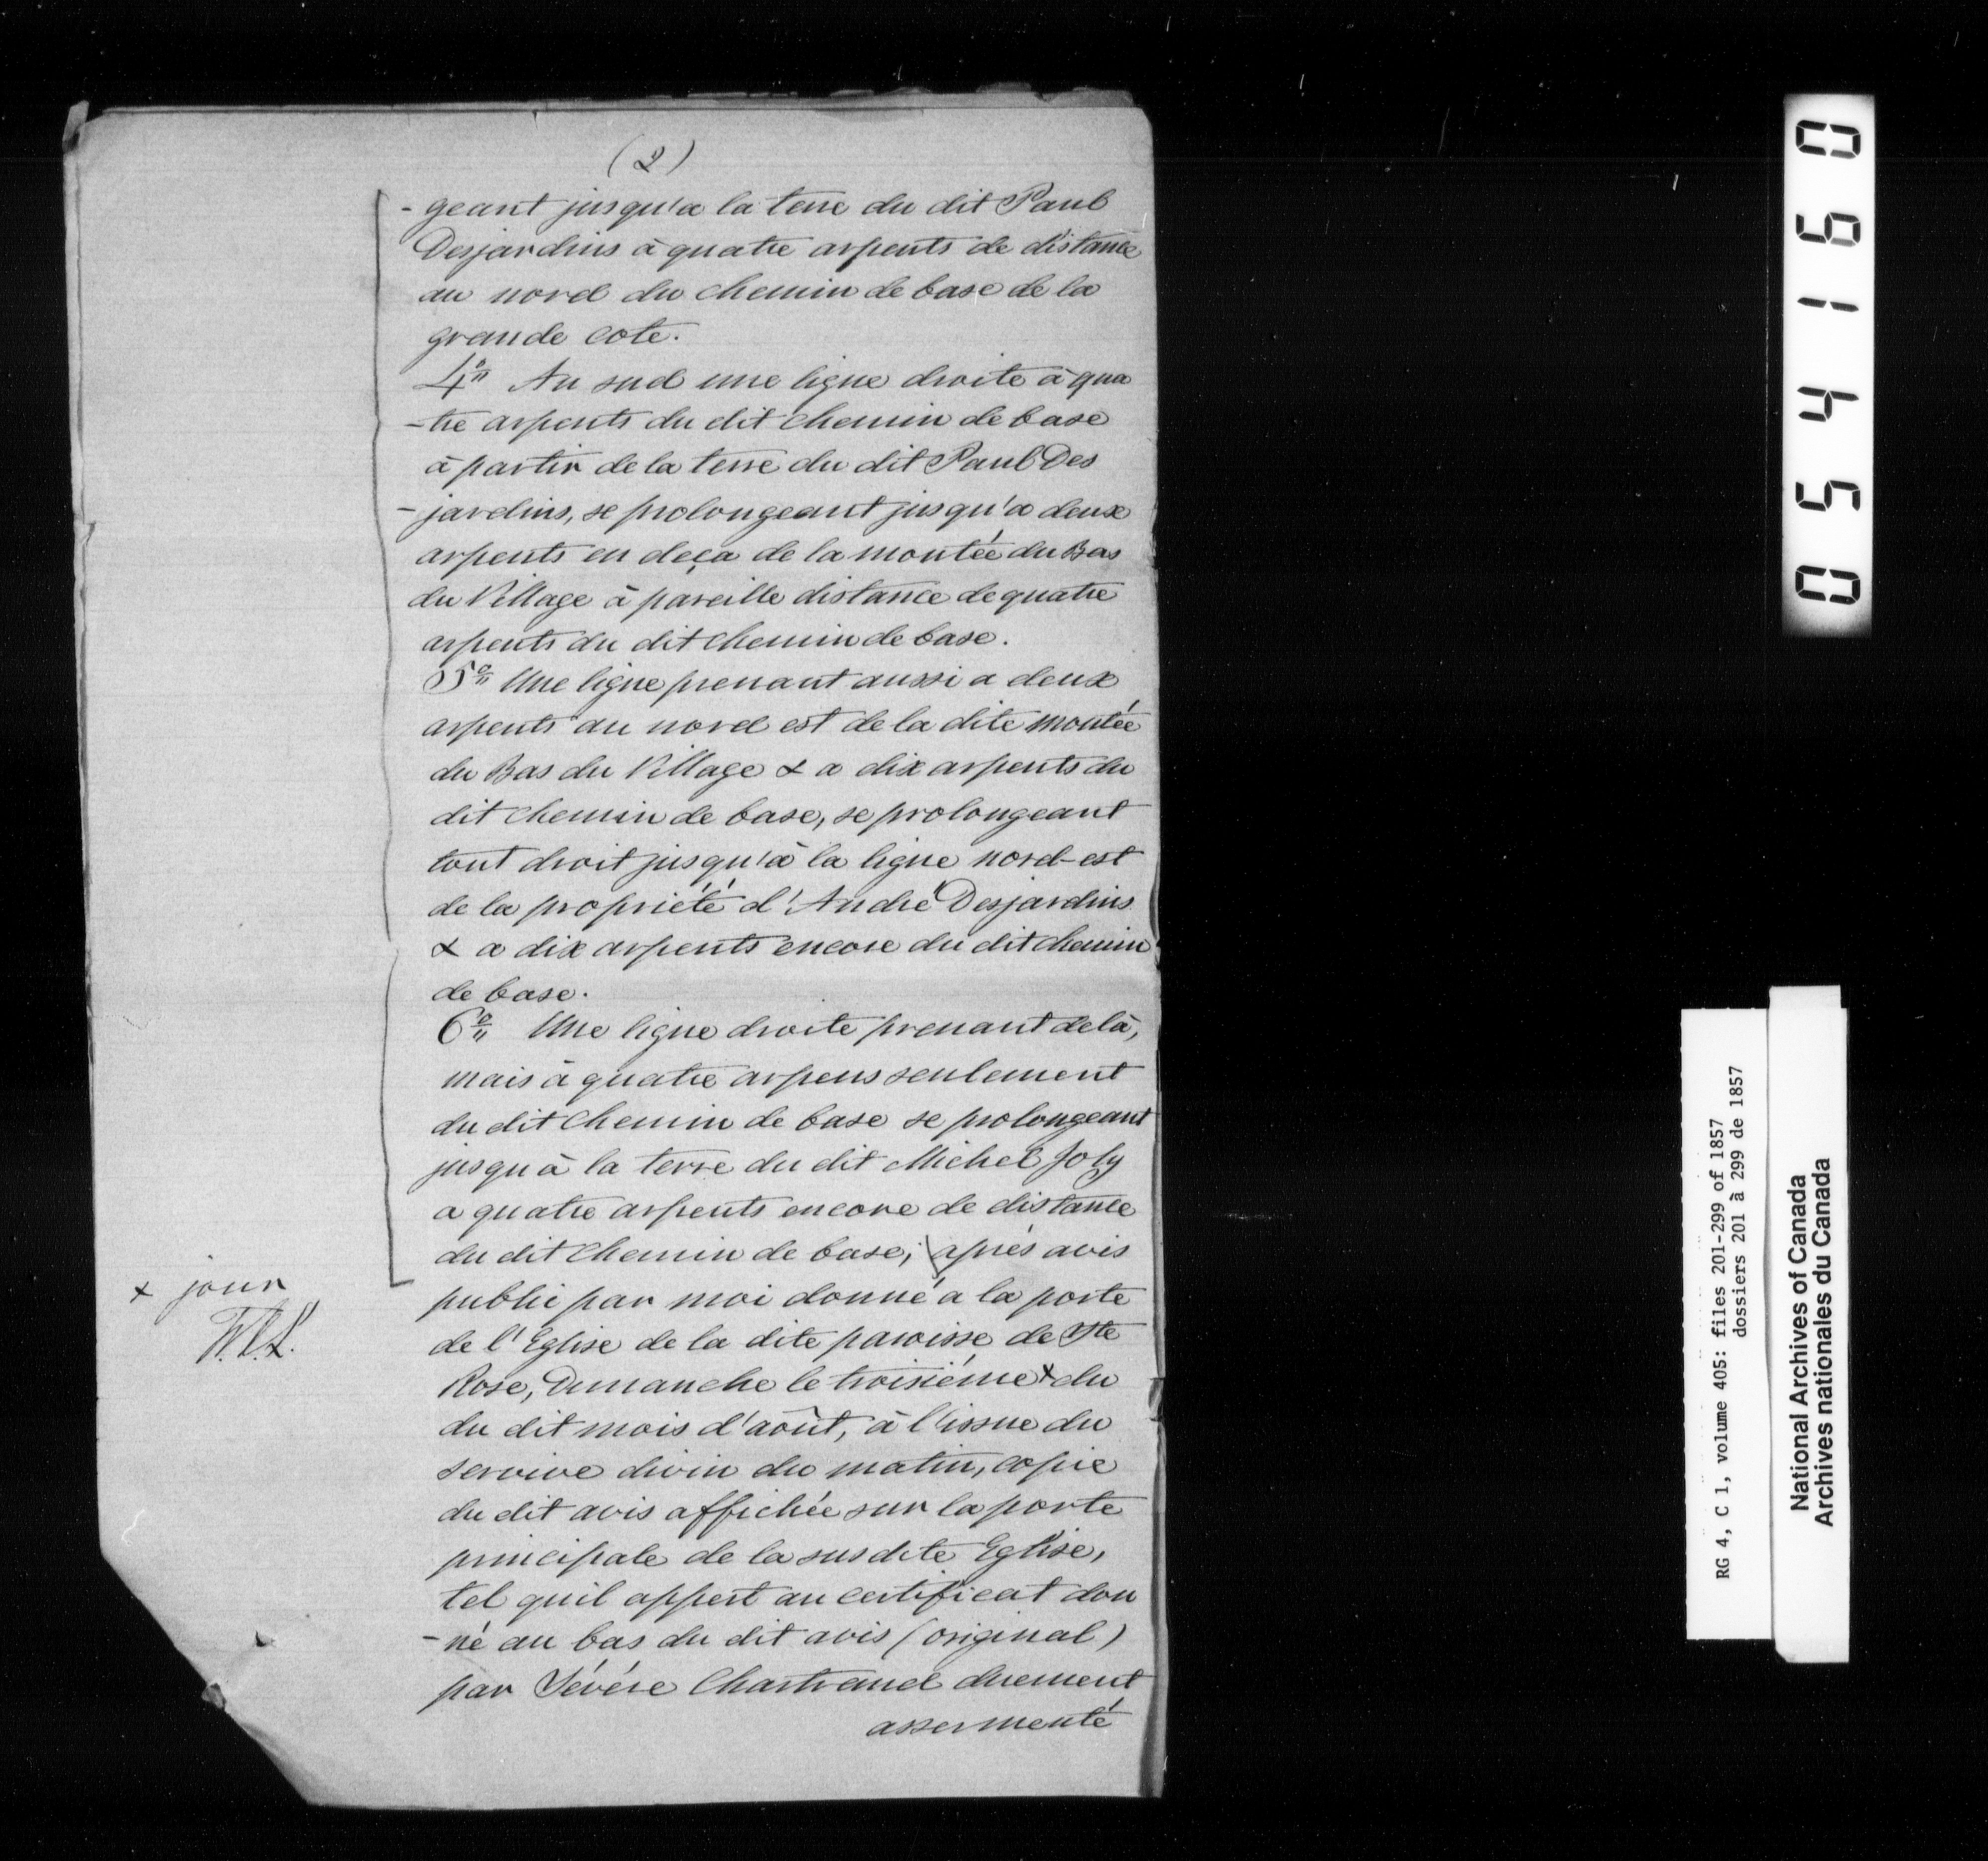 (2)
- geant jusqu'a la terre du dit Paul
Desjardins à quatre arpents de distance
au nord du chemin de base de la
grande cote.
4o Au sud une ligne droite à qua
- tre arpents du dit chemin de base
à partir de la terre du dit Paul Des
- jardins, se prolongeant jusqu'a deux
arpents en deça de la montée du Bas
du Village à pareille distance de quatre
arpents du dit chemin de base.
5o Une ligne prenant aussi a deux
arpents au nord est de la dite montée
du Bas du Village & a dix arpents du
dit chemin de base, se prolongeant
tout droit jusqu'à la ligne nord-est
de la propriété d'André Desjardins
& a dix arpents encore du dit chemin
de base.
6o Une ligne droite prenant delà,
mais à quatre arpens seulement
du dit chemin de base se prolongeant
jusqu à la terre du dit Michel Joly
a quatre arpents encore de distance
du dit chemin de base; après avis
public par moi donné a la porte
de l'Eglise de la dite paroisse de Ste
Rose, Dimanche le troisiéme x du
du dit mois d'août, à l'issue du
service divin du matin, copie
du dit avis affichée sur la porte
principale de la susdite Eglise,
tel quil appert au certificat don
- né au bas du dit avis (original)
par Sévére Chartrand duement
assermenté
x jour
054160
RG 4, C 1, volume 405: files 201-299 of 1857
dossiers 201 à 299 de 1857
National Archives of Canada
Archives nationales du Canada